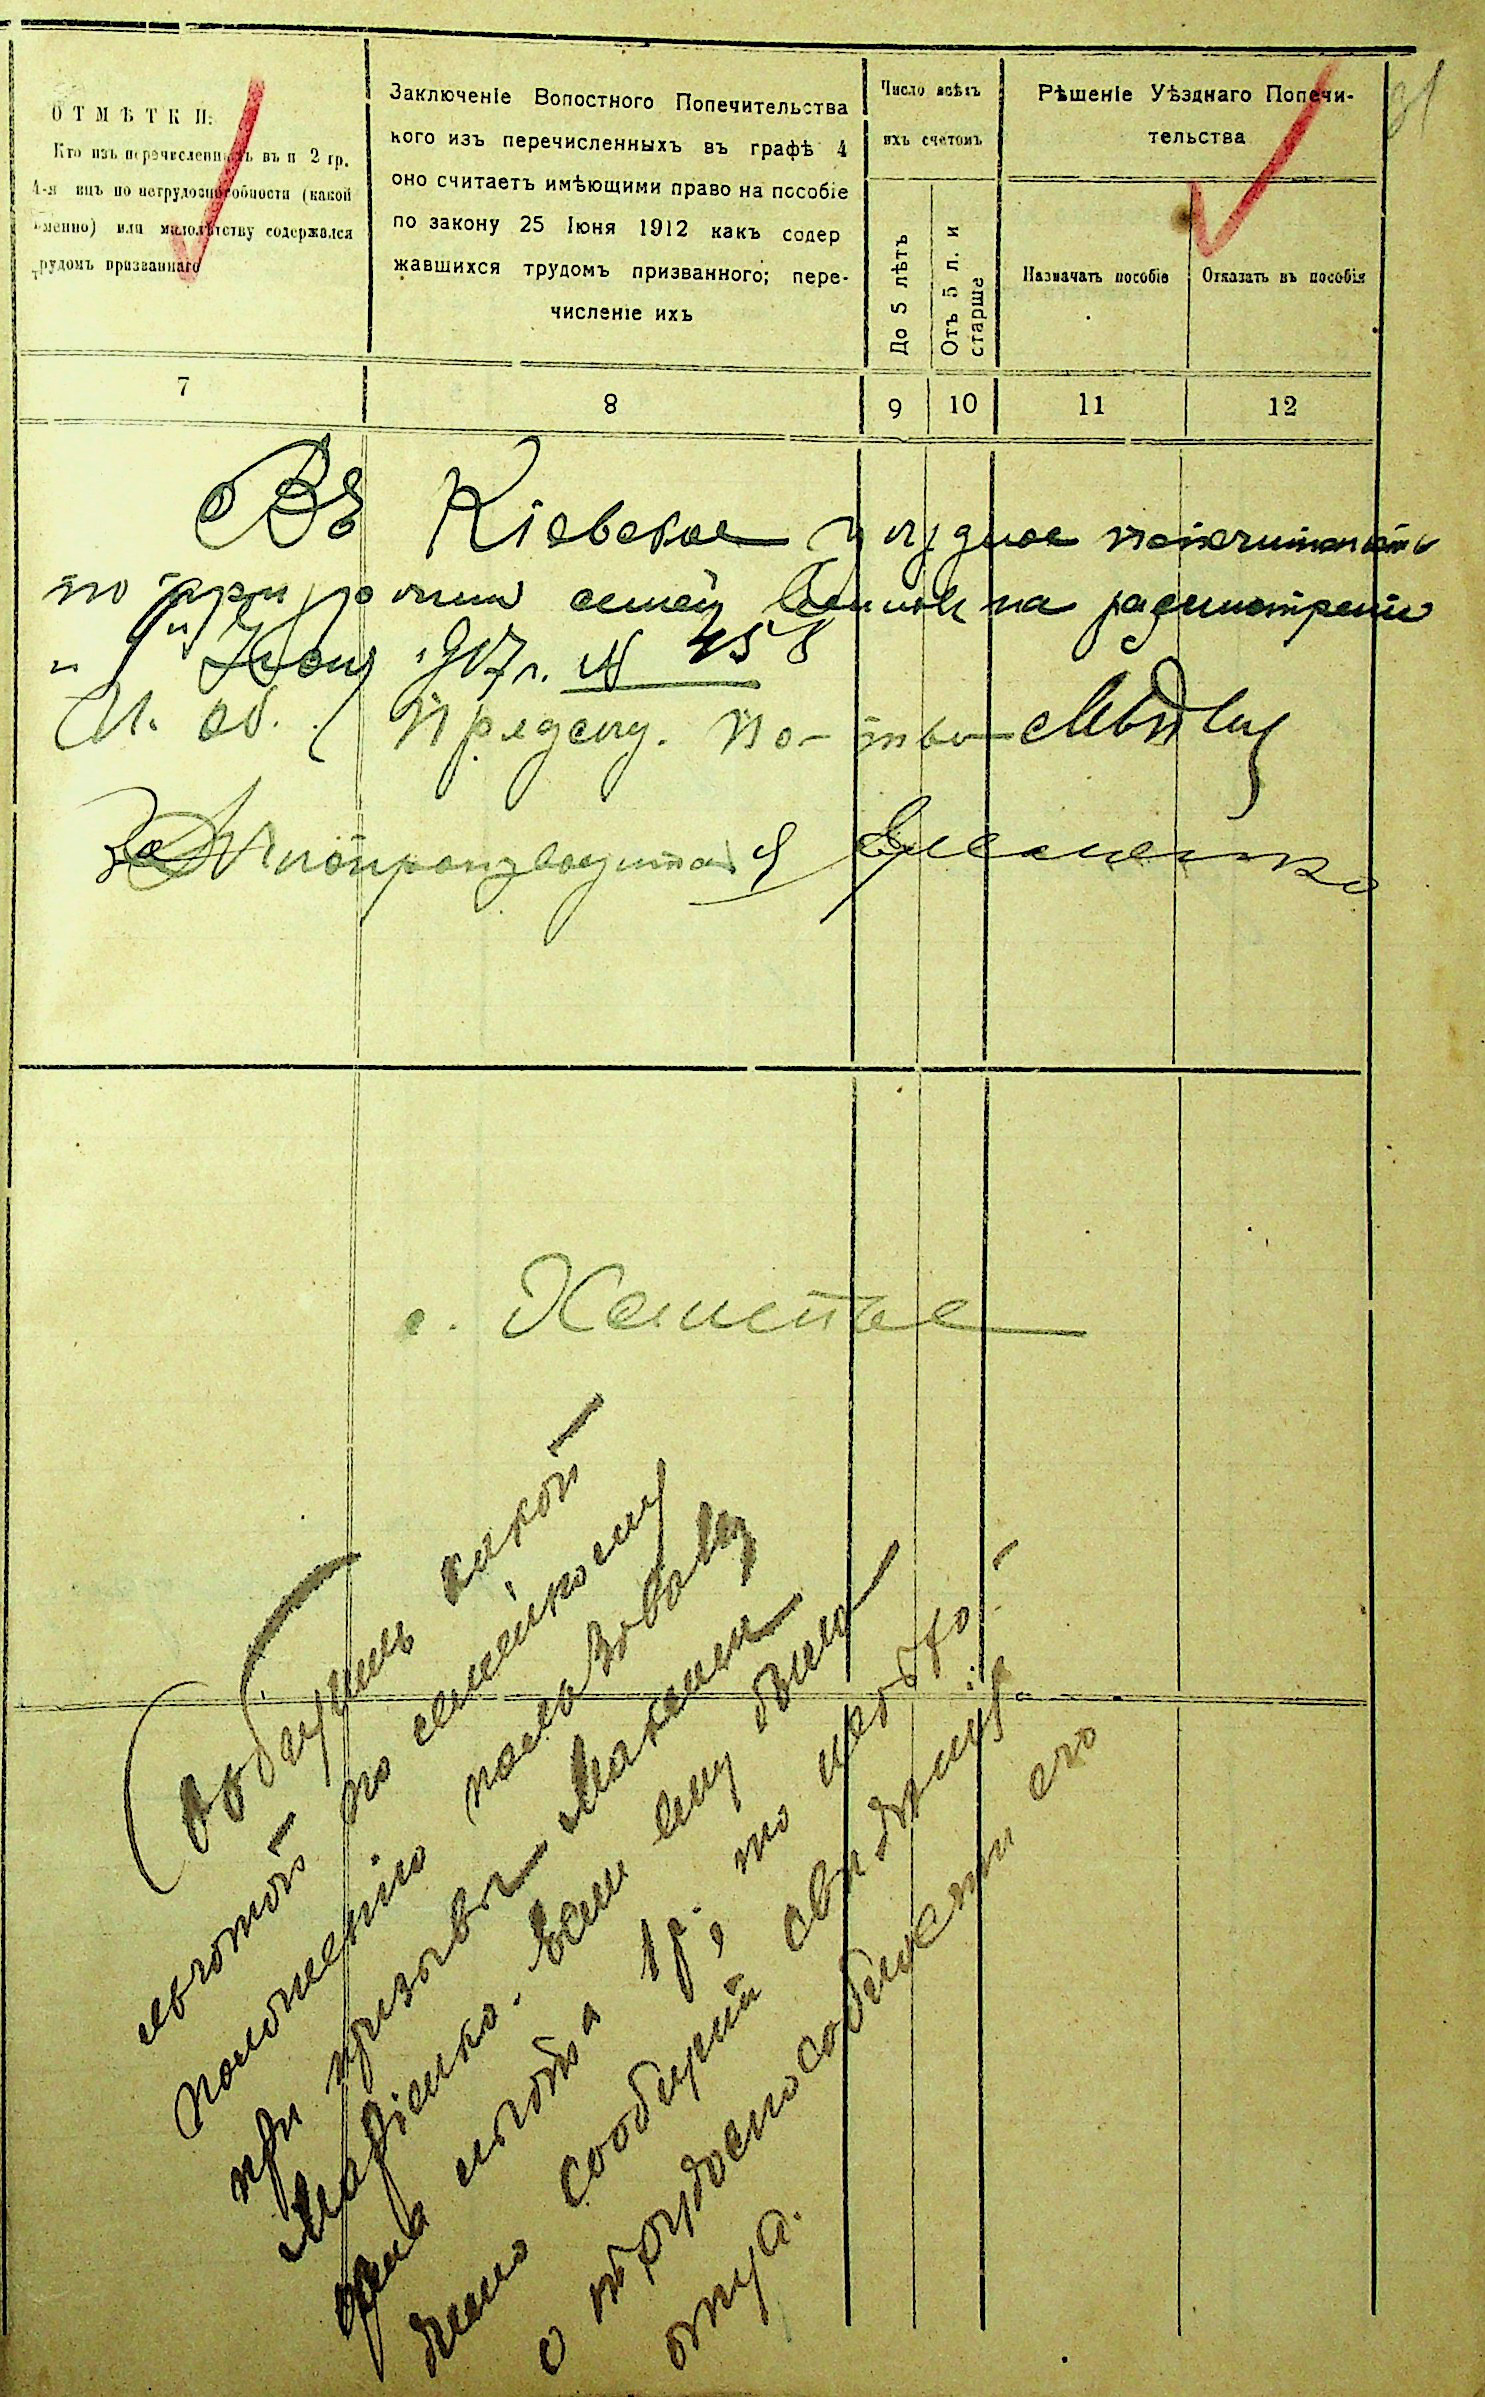 31
ОТМѢТКИ:
Кто изъ перечисленныхъ въ п 2 гр.
4-я лицъ по нетрудоспособности (какой
именно) или малолѣтству содержался
трудомъ призваннаго
Заключеніе Волостного Попечительства
кого изъ перечисленныхъ въ графѣ 4
оно считаетъ имѣющими право на пособіе
по закону 25 Іюня 1912 какъ содер
жавшихся трудомъ призванного; пере-
численіе ихъ
Число всѣхъ
ихъ счетомъ
До 5 лѣтъ
Отъ 5 л. и
старше
Рѣшеніе Уѣзднаго Попечи-
тельства
Назначать пособіе
Отказать въ пособія
7 8 9 10 11 12
Въ Кіевское уѣздное попечительство
по призрѣнию семей на разсмотреніе
" " 1917 г. № 458
И. об. Предсѣд. По-тва
Дѣлопроизводитель
с. Хамстве
Сообщить какой
льготой по семейному
положенію пользовалъ
при призывѣ Максим
Марченко. Если ему была
дана льгота 1 р., то необхо-
димо сообщить свидѣнія
о нетрудоспособности его
отца.